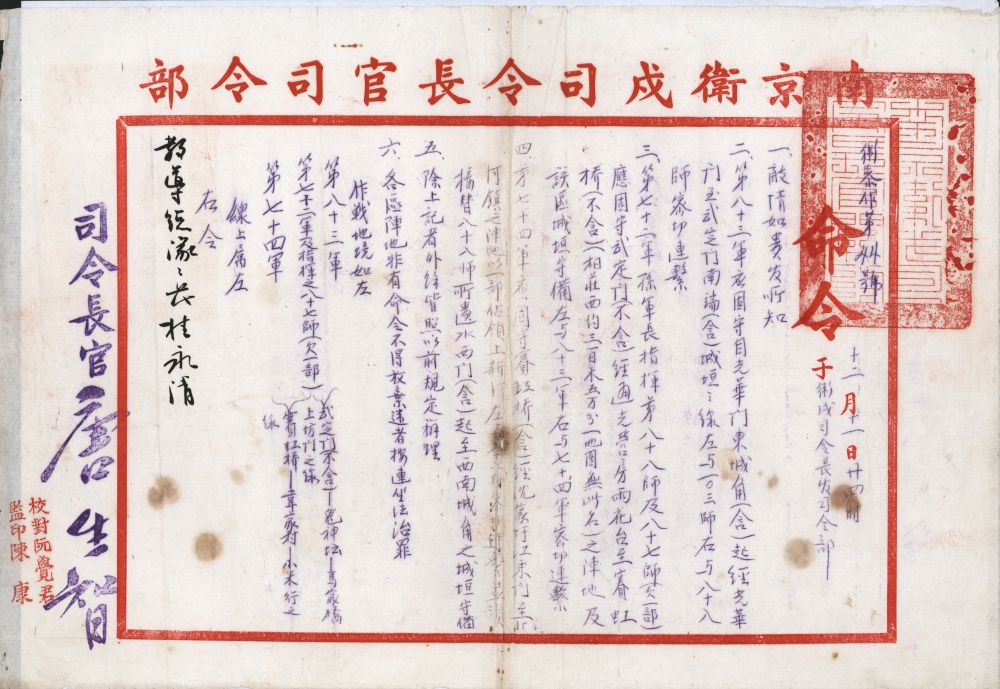 南京衛戍司令長官司令部
命令
衛參作第 號
十二月十一日廿四時
于衛戍司令長官司令部
一、敵情如貴官所知
二、第八十三軍應固守自光華門東城角(含)起經光華
門至武定門南端(含)城垣之線左與一〇三師右與八十八
師密切連繫
三、第七十二軍孫軍長指揮第八十八師及八十七師(欠一部)
應固守武定門(不含)經通光營房雨花台至賽虹
橋(不含)(相莊西約三百米五万分一地圖無此名)之陣地及
該區城垣守備左與八十三軍右與七十四軍密切連繫
四、第七十四軍應固守賽虹橋(含)經沈家圩江東門至
河鎮之陣地以一部佔領上新河左
接替八十八師所遺水西門(含)起至西南城角之城垣守備
五、除上記者外餘皆照以前規定辦理
六、各區陣地非有命令不得放棄違者按連坐法治罪
作戰地境如左
第八十三軍
第七十二軍及指揮之八十七師(欠一部)
武定門(不含)—鬼神坛—馬家橋
上坊門之線
第七十四軍
賽虹橋— —小米行之
線
線上屬左
右令
教導總隊總隊長桂永清
司令長官唐生智
校對阮覺君
監印陳康